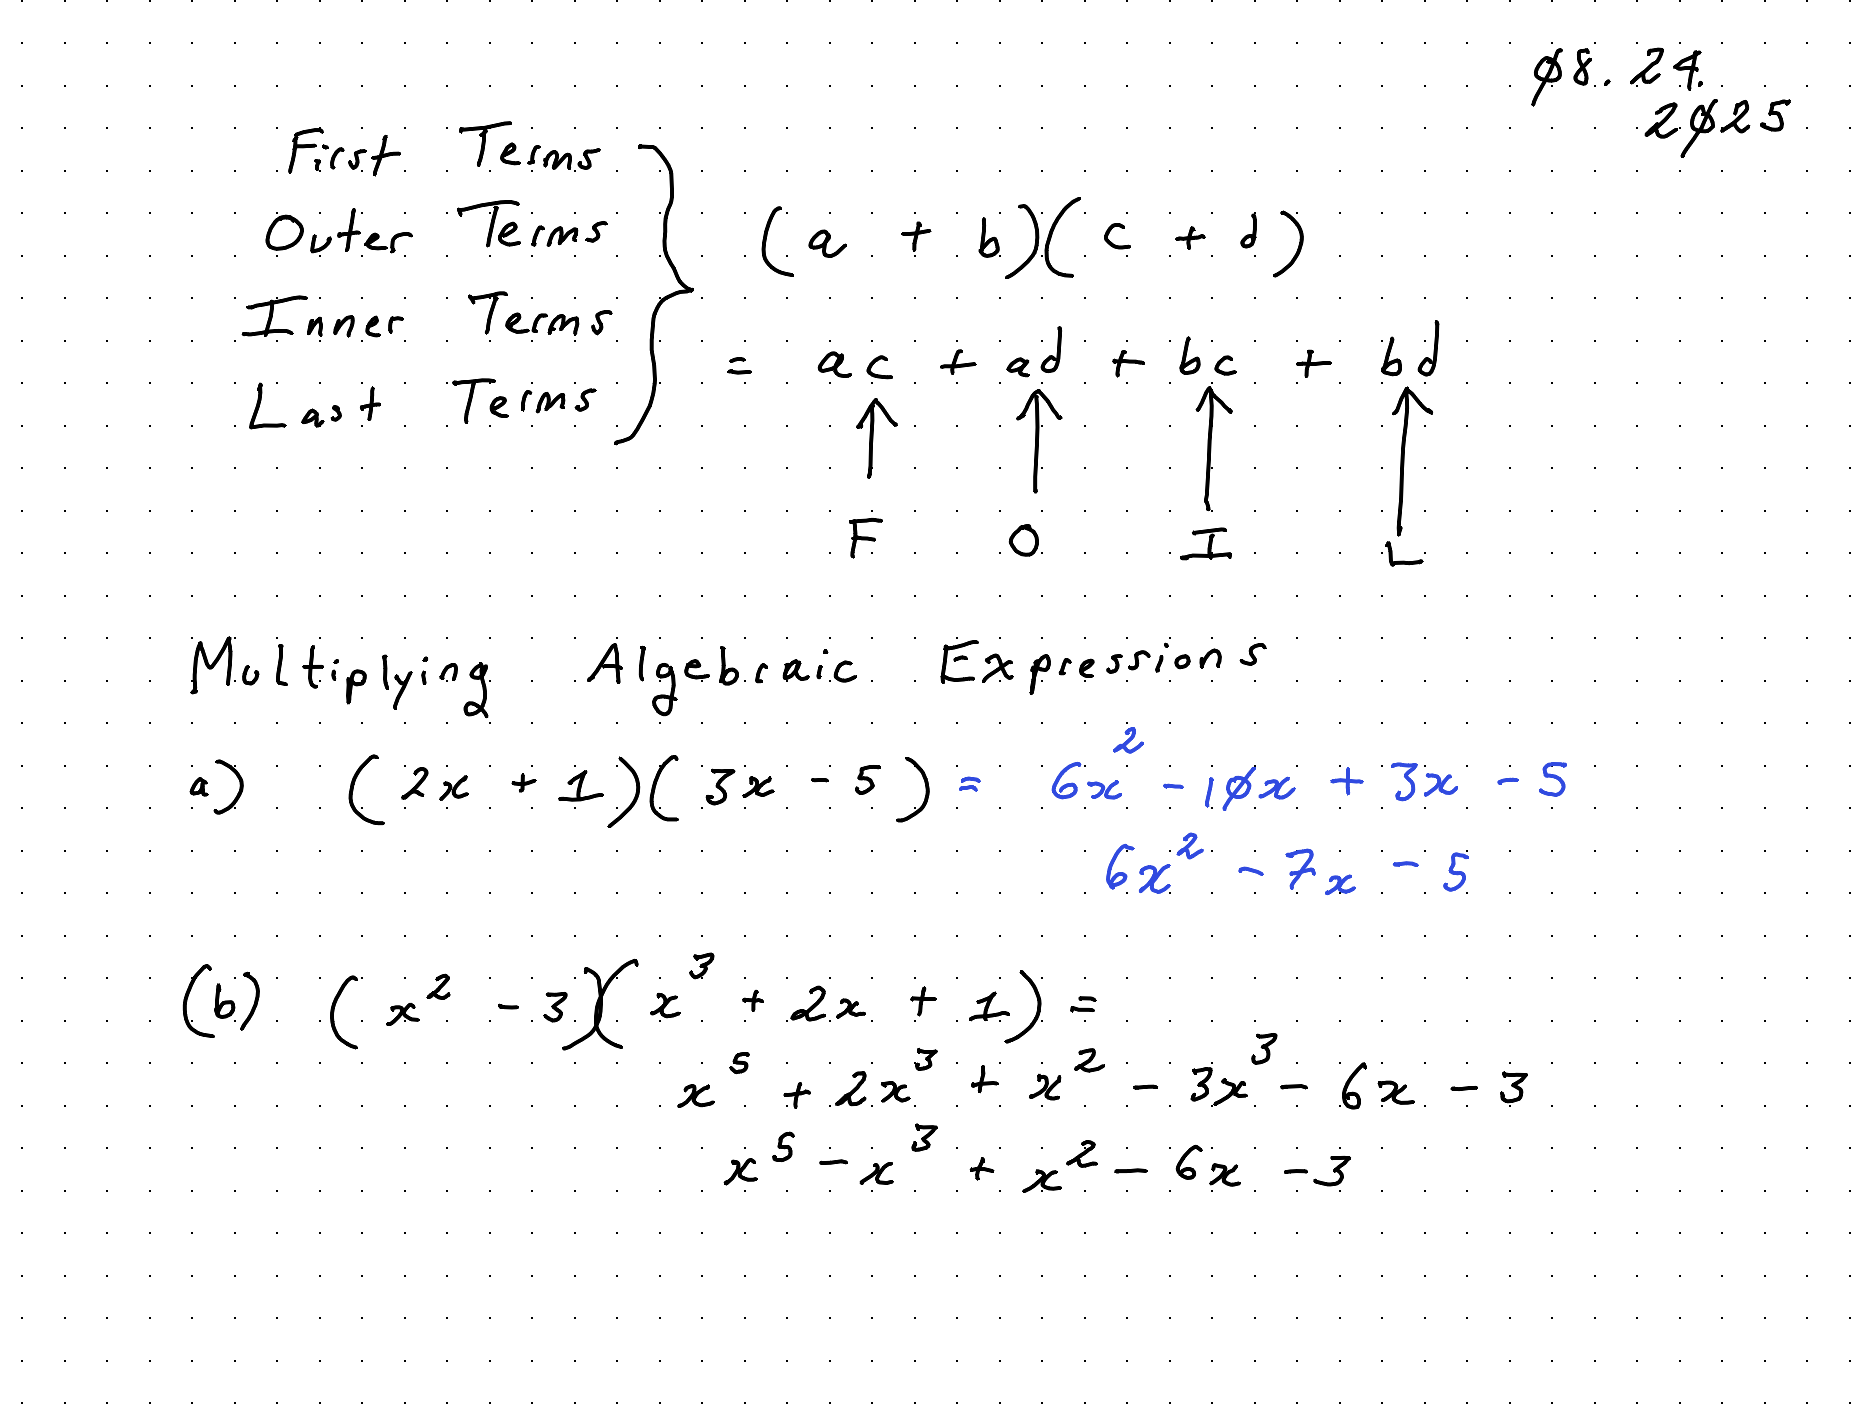 Ø8.24.
2Ø25
First Terms
Outer Terms
Inner Terms
Last Terms
(a + b)(c + d)
= ac + ad + bc + bd
F O I L
Multiplying Algebraic Expressions
a) (2x + 1)(3x - 5) = 6x² - 1Øx + 3x - 5
6x² - 7x - 5
(b) (x² - 3)(x³ + 2x + 1) =
x⁵ + 2x³ + x² - 3x³ - 6x - 3
x⁵ - x³ + x² - 6x - 3